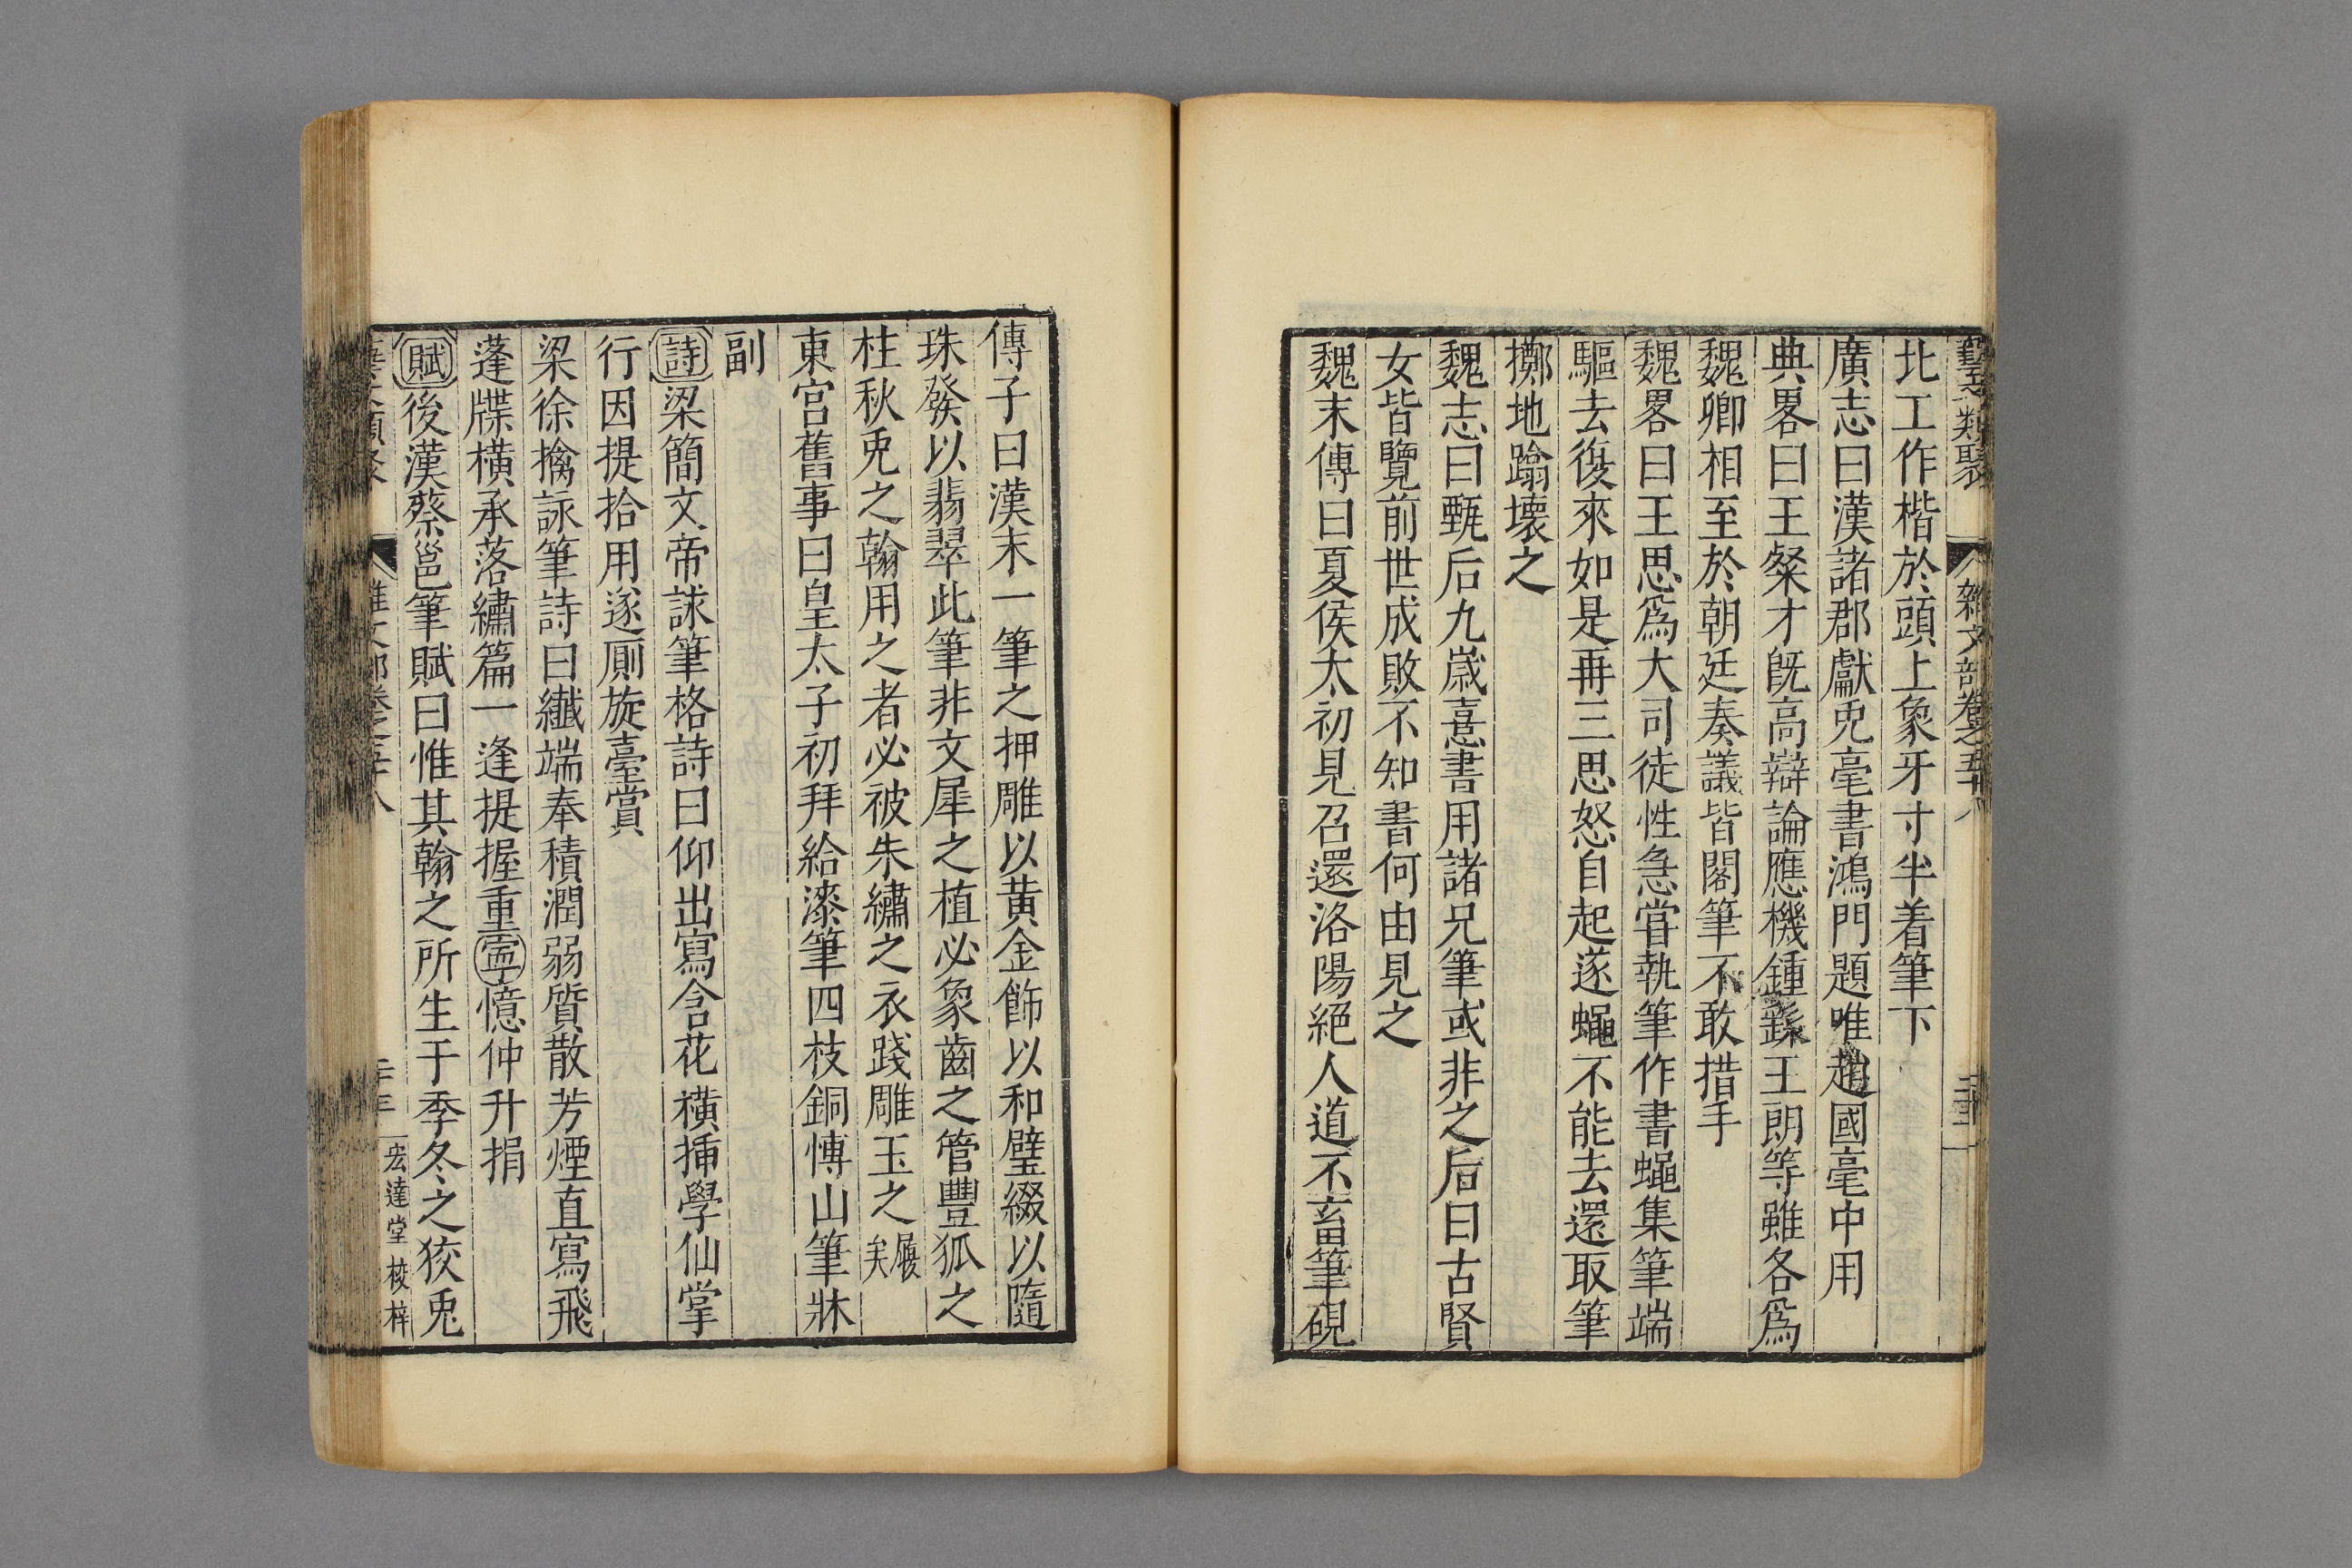 藝文類聚 雜文部卷之五十八 二十二
北工作楷於頭上象牙寸半着筆下
廣志曰漢諸郡獻兎毫書鴻門題唯趙國毫中用
典畧曰王粲才旣高辯論應機鍾繇王朗等雖各爲
魏卿相至於朝廷奏議皆閣筆不敢措手
魏畧曰王思爲大司徒性急甞執筆作書蠅集筆端
驅去復來如是再三思怒自起逐蠅不能去還取筆
擲地蹹壞之
魏志曰甄后九歲憙書用諸兄筆或非之后曰古賢
女皆覽前世成敗不知書何由見之
魏末傳曰夏侯太初見召還洛陽絕人道不畜筆硯
傳子曰漢末一筆之押雕以黃金飾以和璧綴以隨
珠發以翡翠此筆非文犀之植必象齒之管豐狐之
柱秋兎之翰用之者必被朱繡之衣踐雕玉之履矣
東宮舊事曰皇太子初拜給漆筆四枝銅愽山筆牀
副
詩梁簡文帝詠筆格詩曰仰出寫含花橫插學仙掌
行因提拾用遂厠旋臺賞
梁徐摛詠筆詩曰纖端奉積潤弱質散芳煙直寫飛
蓬牒橫承落繡篇一逢提握重寧憶仲升捐
賦後漢蔡邕筆賦曰惟其翰之所生于季冬之狡兎
文類聚 雜文部卷之五十八 宏達堂校梓